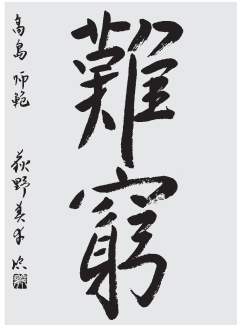 難窮
高島 師範 荻野美